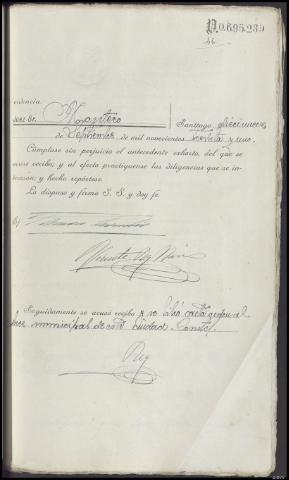 P.0.695.239
44
videncia
Juez Sr. Montero    Santiago diecinueve
de Septiembre de mil novecientos treinta y uno.
Cúmplase sin perjuicio el antecedente exhorto, del que se
acuse recibo; y al efecto practíquense las diligencias que se in-
teresan; y hecho repórtese.
Lo dispuso y firma S. S. y doy fe.
Vicente Rey
Seguidamente se acusó recibo y se libó carta orden al
Juez municipal de esta Ciudad. Consta.
Rey